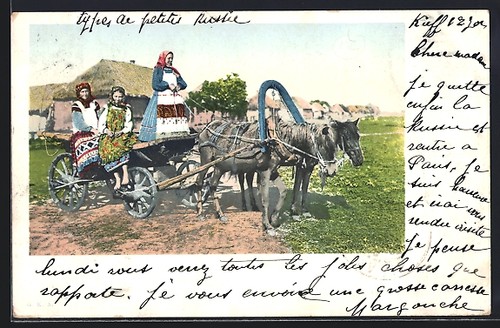 types de petite Russie
Kieff
Chère madame
je quitte
enfin la
Russie et
rentre à
Paris, je
suis
et irai vous
rendre visite
je pense
lundi vous verrez toutes les jolies choses que
rapporte. Je vous envoie une grosse caresse